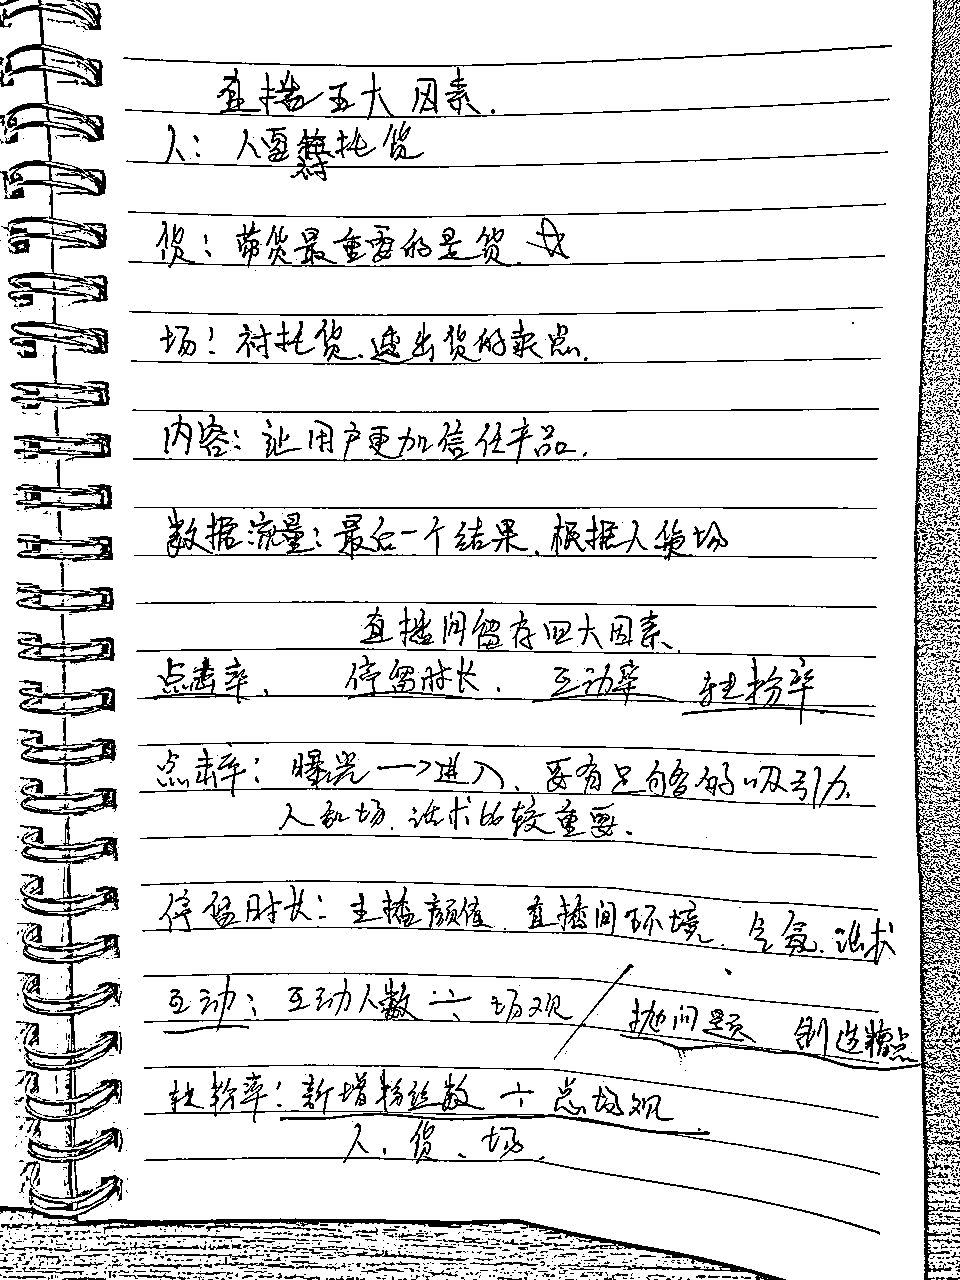 直播五大因素.
人：人要衬托货
货：带货最重要的是货.☆
场：衬托货.透出货的卖点.
内容：让用户更加信任产品.
数据流量：最后一个结果.根据人货场
直播间留存四大因素.
点击率、 停留时长. 互动率 转粉率
点击率：曝光→进入.要有足够的吸引力.
人和场.话术比较重要.
停留时长：主播颜值 直播间环境. 气氛.话术
互动：互动人数÷场观 / 抛问题 制造槽点
转粉率：新增粉丝数÷总场观
人、货、场.